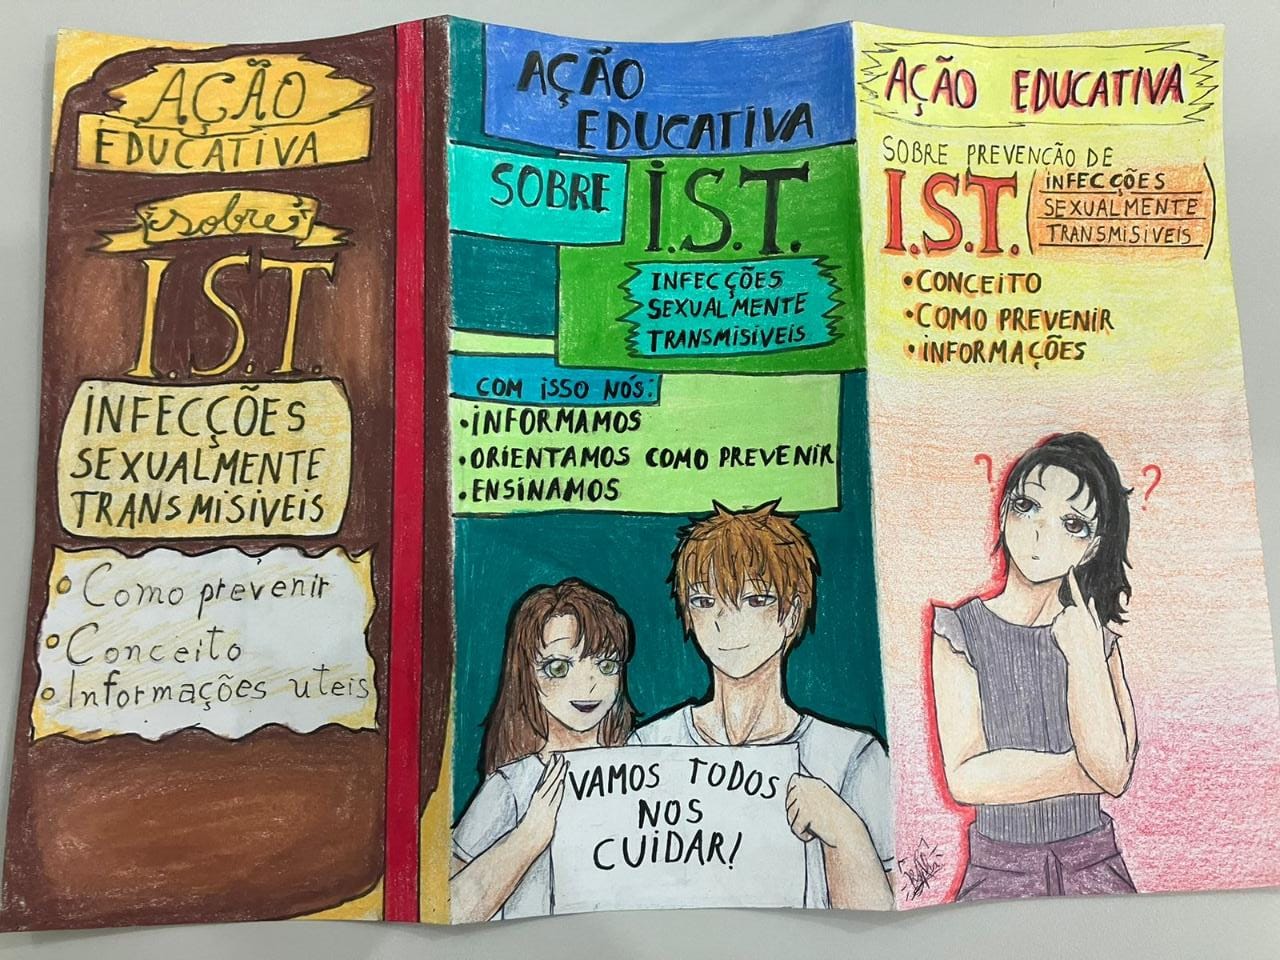 AÇÃO
EDUCATIVA
sobre
I.S.T.
INFECÇÕES
SEXUALMENTE
TRANSMISIVEIS
• Como prevenir
• Conceito
• Informações uteis
AÇÃO
EDUCATIVA
SOBRE I.S.T.
INFECÇÕES
SEXUALMENTE
TRANSMISIVEIS
COM ISSO NÓS:
• INFORMAMOS
• ORIENTAMOS COMO PREVENIR
• ENSINAMOS
VAMOS TODOS
NOS
CUIDAR!
AÇÃO EDUCATIVA
SOBRE PREVENÇÃO DE
I.S.T. (INFECÇÕES
SEXUALMENTE
TRANSMISIVEIS)
• CONCEITO
• COMO PREVENIR
• INFORMAÇÕES
? ?